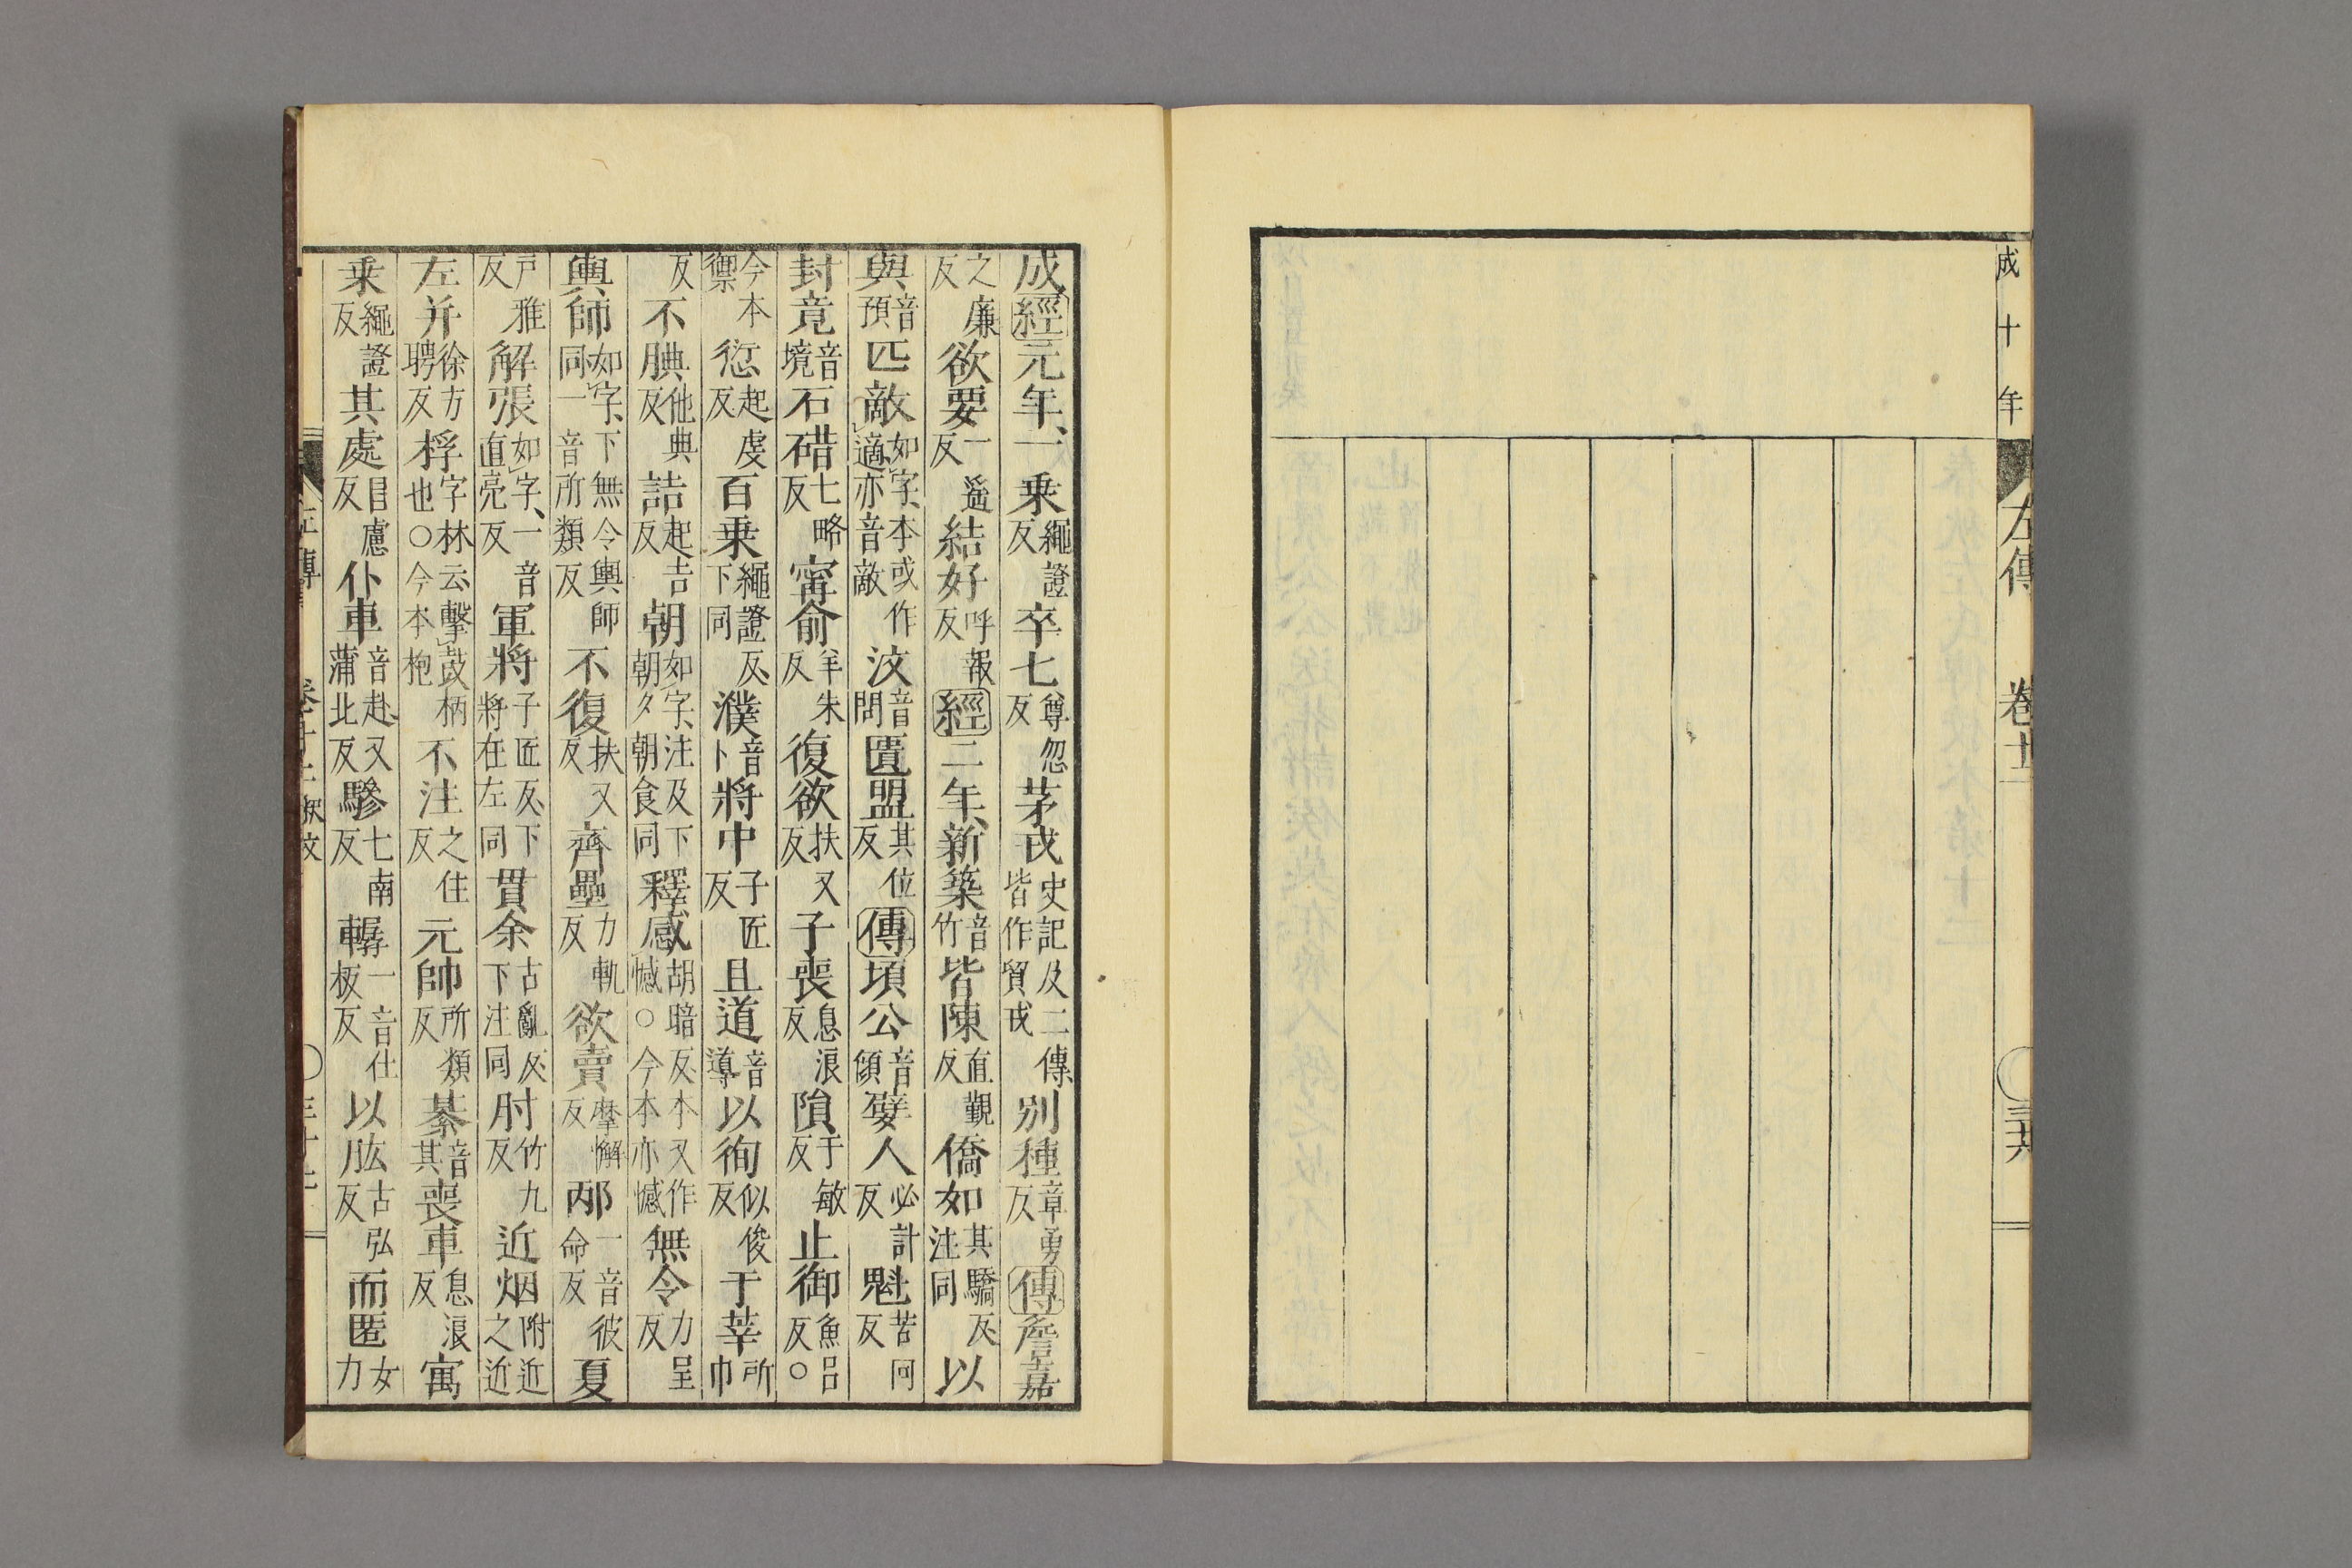 成十年
左傳 卷十二 三十六
成經元年、一乗繩證反卒七尊忽反茅戎史記及二傳皆作貿戎別種章勇反傳詹嘉
之廉反欲要一遥反結好呼報反經二年、新築音竹皆陳直覲反僑如其驕反注同以
與音預匹敵如字、本或作適、亦音敵汶音問匱盟其位反傳頃公音傾嬖人必計反魁苦回反
封竟音境石碏七略反甯俞羊朱反復欲扶又反子喪息浪反隕于敏反止御魚呂反○
今本禦愆起虔反百乗繩證反下同濮音卜將中子匠反且道音導以徇似俊反于莘所巾
反不腆他典反詰起吉反朝如字、注及下朝夕朝食同釋感胡暗反、本又作憾○今本亦憾無令力呈反
輿師如字、下無令輿師同一音所類反不復扶又反齊壘力軌反欲賣摩懈反邴一音彼命反夏
戸雅反解張如字、一音直亮反軍將子匠反、下將在左同貫余古亂反、下注同肘竹九反近烟附近之近
左并徐方聘反桴字林云擊鼓柄也○今本枹不注之住反元帥所類反綦音其喪車息浪反寓
乗繩證反其處昌慮反仆車音赴又蒲北反驂七南反轏一音仕板反以肱古弘反而匿女力